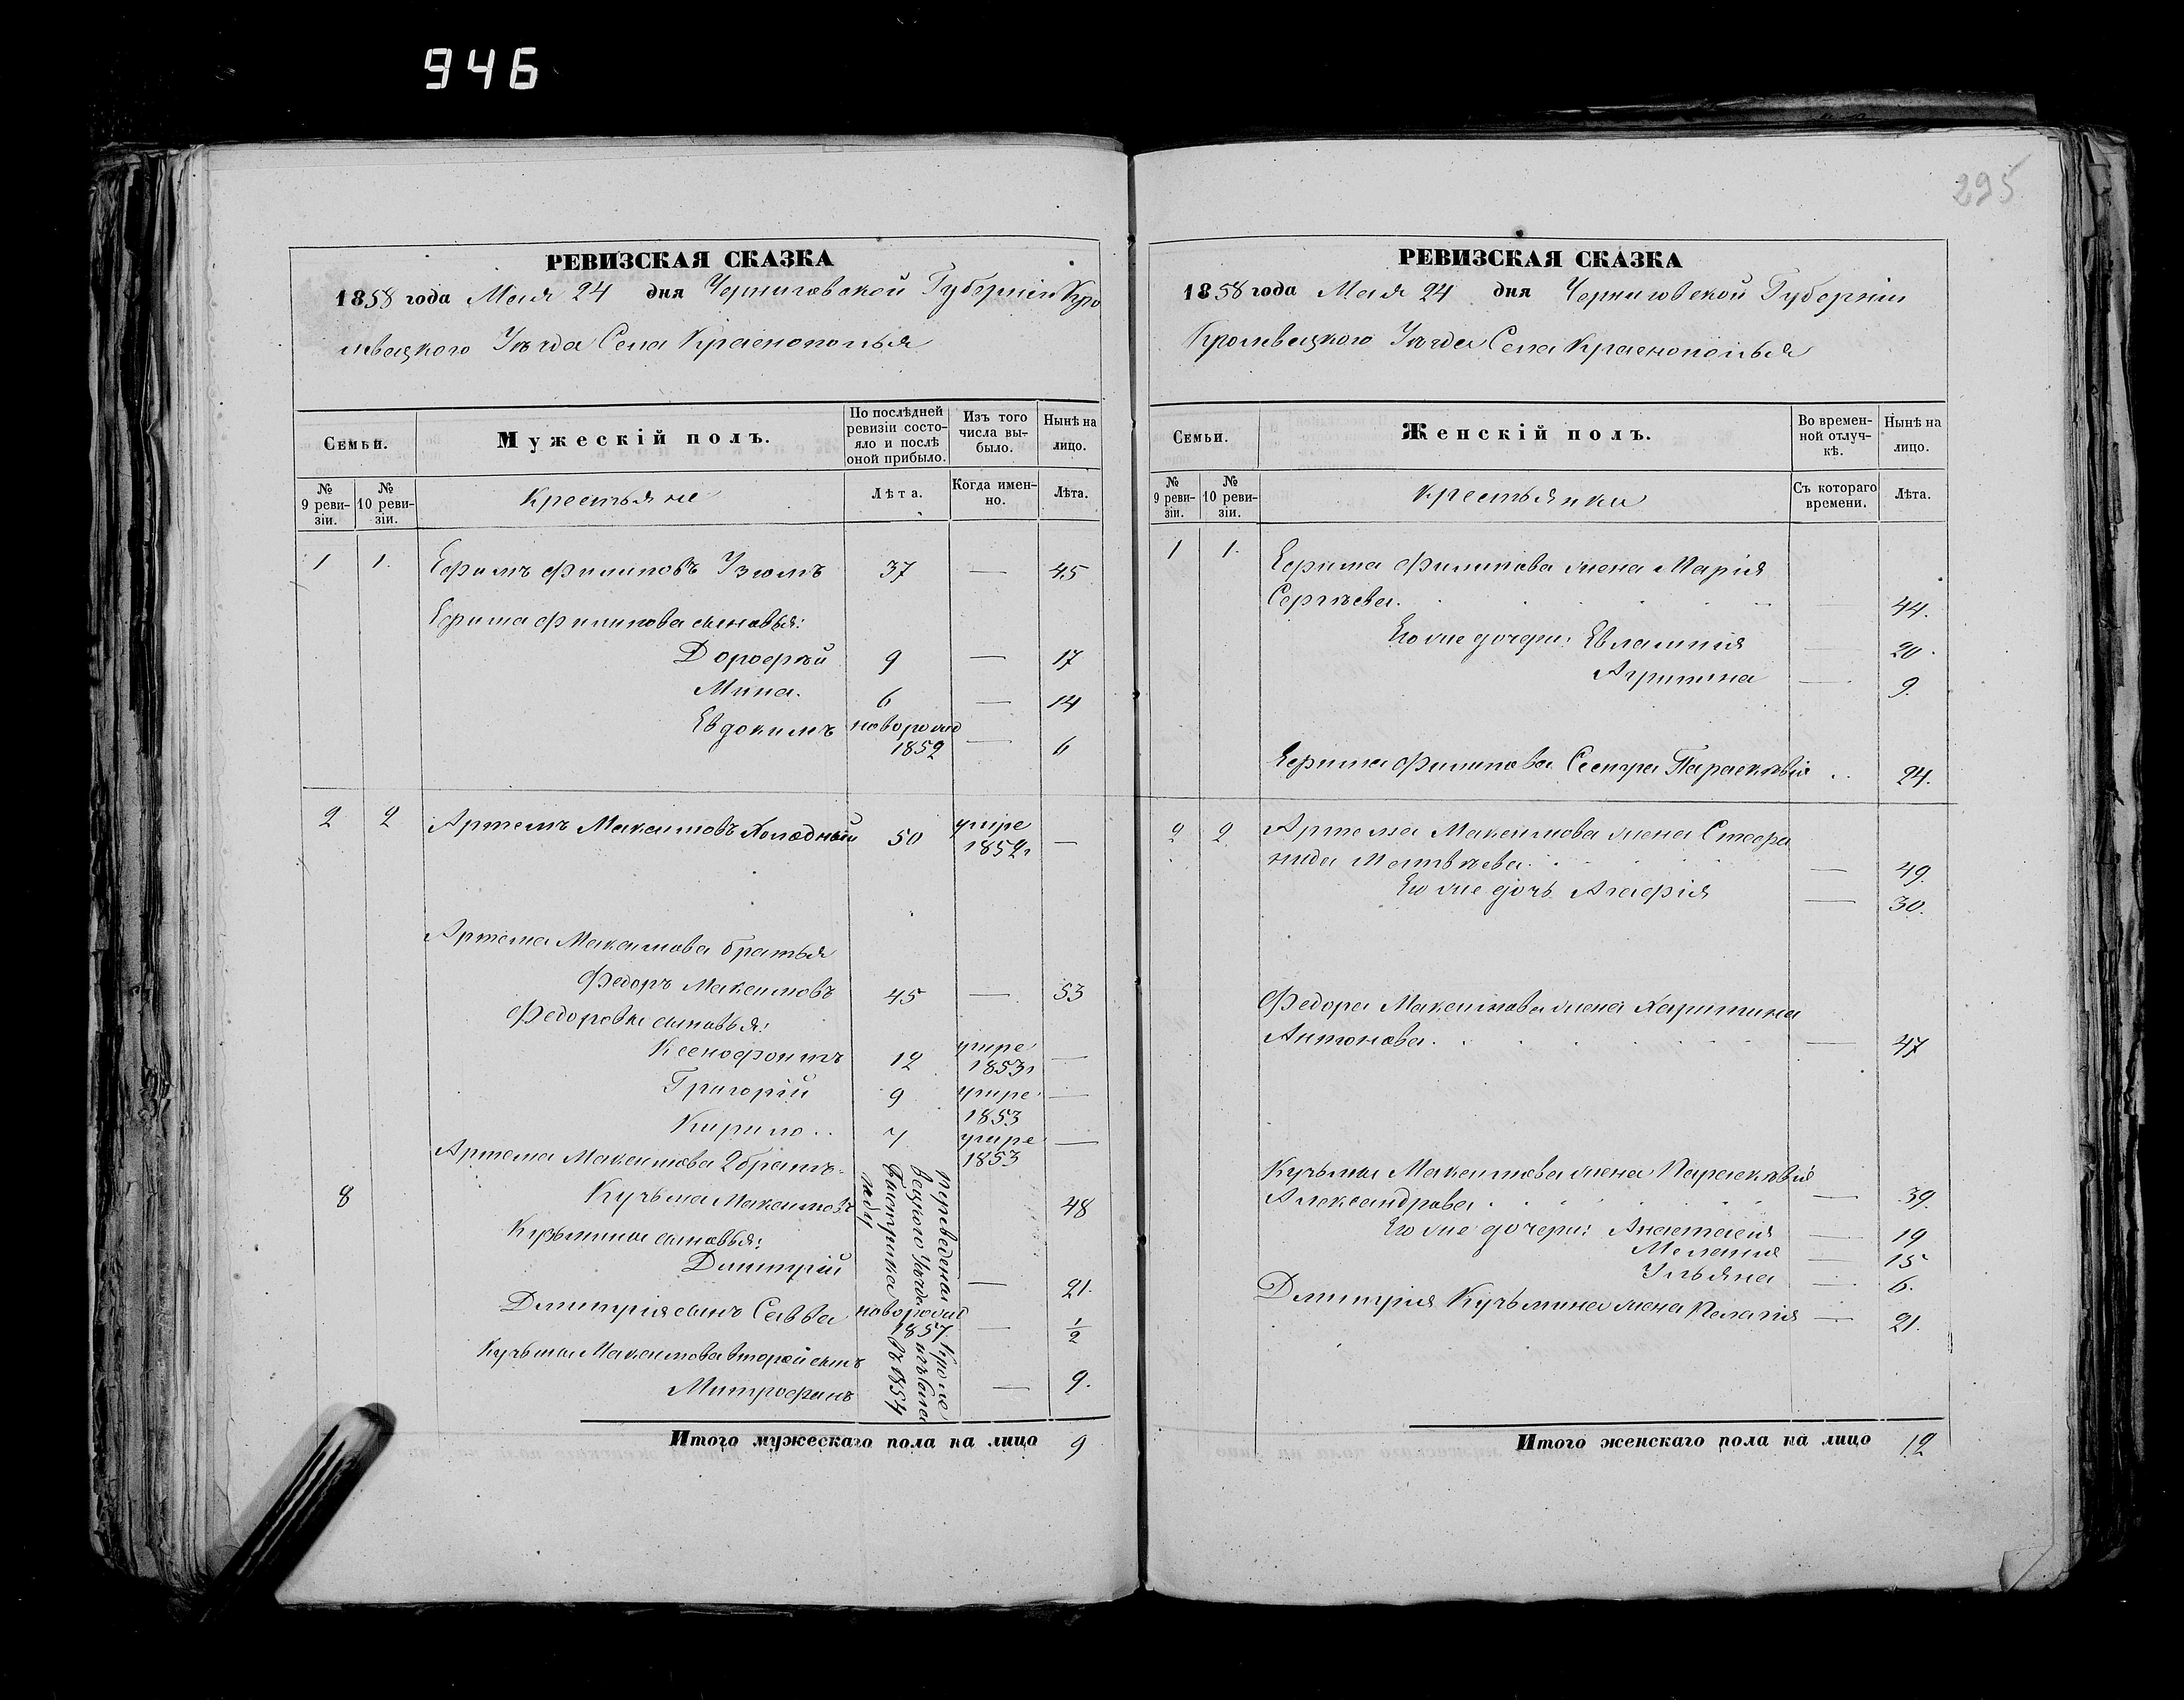 946
295
РЕВИЗСКАЯ СКАЗКА
1858 года Мая 24 дня Черниговской Губерніи Кро
левецкого Уезда Села Краснополья
Семьи.
Мужескій полъ.
По послѣдней ревизіи состояло и послѣ оной прибыло.
Изъ того числа выбыло.
Нынѣ на лицо.
№ 9 ревизіи.
№ 10 ревизіи.
Крестьяне
Лѣта.
Когда именно.
Лѣта.
1 1. Ефимъ Филиповъ 37 — 45
Ефима Филипова сыновья:
Дорофѣй 9 — 17
Мина. 6 — 14
Евдокимъ новорожд
1852 — 6
2 2 Артемъ Максимовъ Холодный 50 умре
1852 —
Артема Максимова братья
Федоръ Максимовъ 45 — 53
Федоровы сыновья:
Ксенофонтъ 12 умре
1853 —
Григорій 9 умре
1853 —
Кирило .. 7 умре
1853 —
Артема Максимова 2 братъ
8 Кузьма Максимовъ 48
Кузьмины сыновья:
Димитрій — 21.
Димитрія сынъ Савва новорожд
1857 — 1/2
Кузьмы Максимова второй сынъ
Митрофанъ — 9.
переведены Кроле
вецкого Уезда изъ села
Быстрика въ 1854
году
Итого мужескаго пола на лицо 9
РЕВИЗСКАЯ СКАЗКА
1858 года Мая 24 дня Черниговской Губерніи
Кролевецкого Уезда Села Краснополья
Семьи.
Женскій полъ.
Во временной отлучкѣ.
Нынѣ на лицо.
№ 9 ревизіи.
№ 10 ревизіи.
Крестьянки
Съ котораго времени.
Лѣта.
1 1. Ефима Филипова жена Марія
Сергѣева. — 44.
Его же дочери: Евлампія — 20.
Агрипина — 9.
Ефима Филипова Сестра Параскѣвія .. 24.
2 2. Артема Максимова жена Стефа
нида Матвѣева. — 49.
Его же дочь Агафія — 30.
Федора Максимова жена Харитина
Антонова. — 47
Кузьмы Максимова жена Параскѣвія
Александрова — 39.
Его же дочери: Анастасія — 19
Меланія — 15
Ульяна — 6.
Димитрія Кузьмина жена Пелагія — 21.
Итого женскаго пола на лицо 12